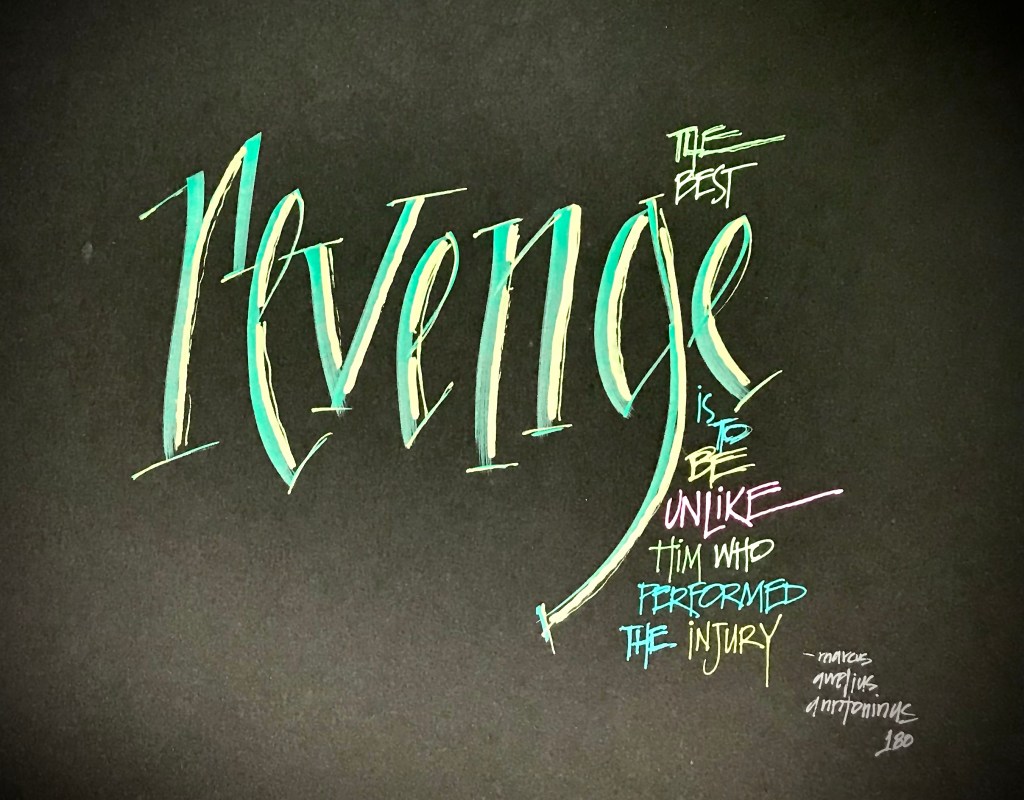 THE
BEST
revenge
is
TO
BE
UNLiKE
HiM WHO
PERFORMED
THE iNJURY
-marcus
aurelius
anntoninus
180